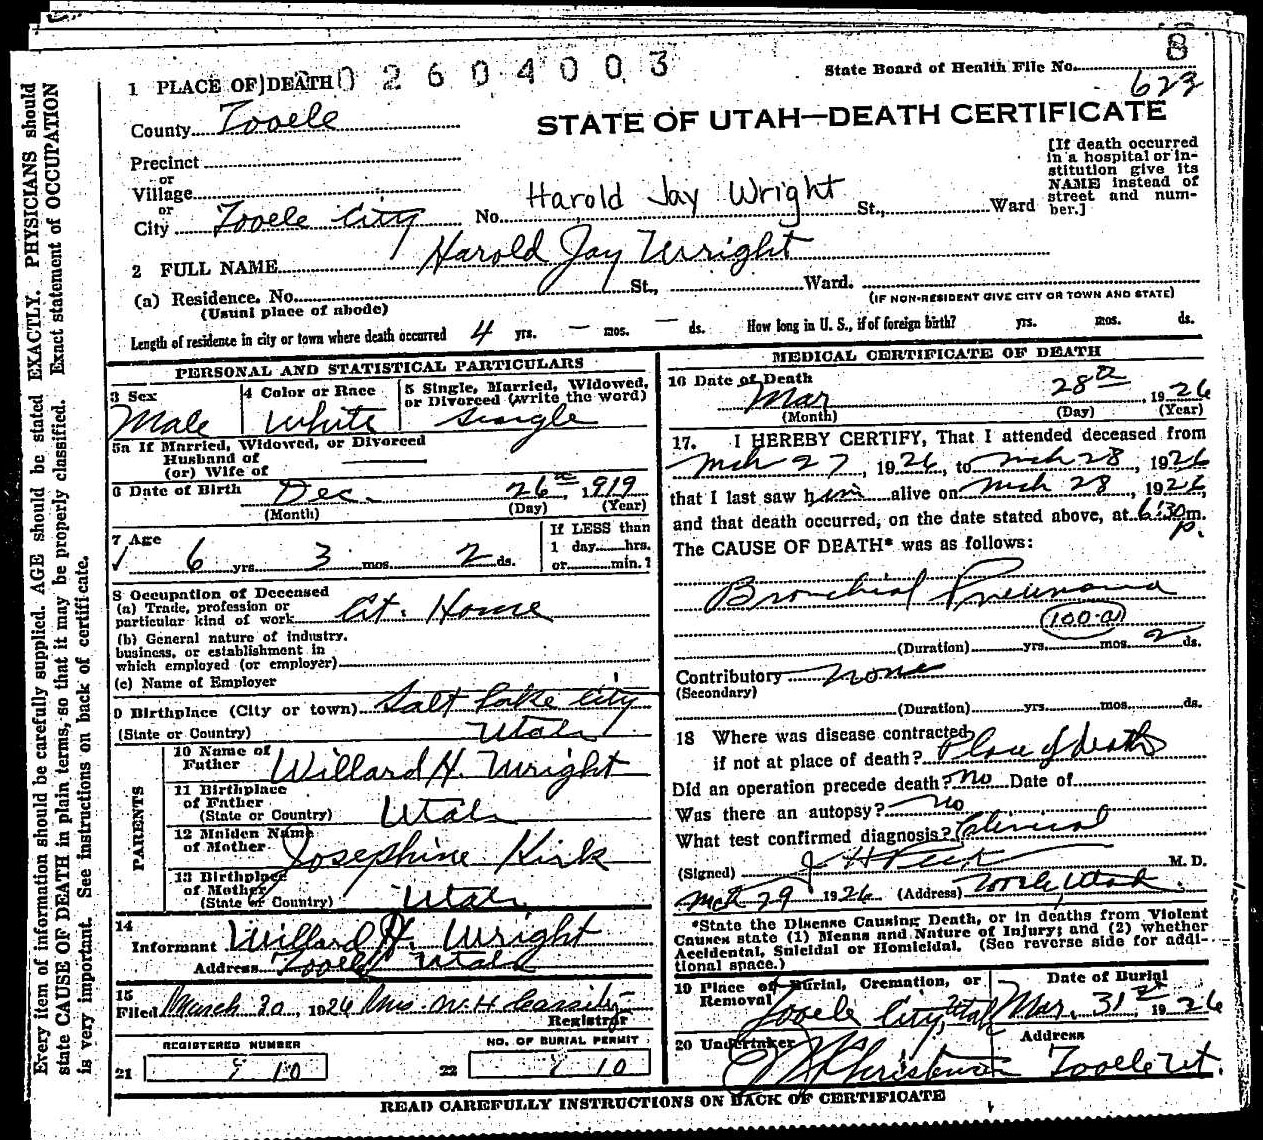 8
1 PLACE OF DEATH 0 2 6 0 4 0 0 0 3
State Board of Health File No. 623
County Tooele
STATE OF UTAH—DEATH CERTIFICATE
Precinct
or
Village
or
City Tooele City No. Harold Jay Wright St., Ward
[If death occurred
in a hospital or in-
stitution give its
NAME instead of
street and num-
ber.]
2 FULL NAME Harold Jay Wright
(a) Residence. No. St., Ward.
(Usual place of abode)
(IF NON-RESIDENT GIVE CITY OR TOWN AND STATE)
Length of residence in city or town where death occurred 4 yrs. — mos. — ds. How long in U. S., if of foreign birth? yrs. mos. ds.
PERSONAL AND STATISTICAL PARTICULARS
3 Sex
Male
4 Color or Race
White
5 Single, Married, Widowed,
or Divorced (write the word)
Single
5a If Married, Widowed, or Divorced
Husband of
(or) Wife of
6 Date of Birth Dec. 26th, 1919
(Month) (Day) (Year)
7 Age
6 yrs. 3 mos. 2 ds.
If LESS than
1 day......hrs.
or......min.?
8 Occupation of Deceased
(a) Trade, profession or
particular kind of work At Home
(b) General nature of industry,
business, or establishment in
which employed (or employer)
(c) Name of Employer
9 Birthplace (City or town) Salt Lake City
(State or Country) Utah
PARENTS
10 Name of
Father Willard H. Wright
11 Birthplace
of Father
(State or Country) Utah
12 Maiden Name
of Mother Josephine Kirk
13 Birthplace
of Mother
(State or Country) Utah
14
Informant Willard H. Wright
Address Tooele Utah
15
Filed March 30, 1926 Mrs. W. H. Cassity
Registrar
REGISTERED NUMBER
21 10
NO. OF BURIAL PERMIT
22 10
MEDICAL CERTIFICATE OF DEATH
16 Date of Death
Mar 28th, 1926
(Month) (Day) (Year)
17. I HEREBY CERTIFY, That I attended deceased from
Mch 27, 1926, to Mch 28, 1926
that I last saw him alive on Mch 28, 1926,
and that death occurred, on the date stated above, at 6:30 p.m.
The CAUSE OF DEATH* was as follows:
Bronchial Pneumonia
100-a
(Duration) yrs. mos. 2 ds.
Contributory none
(Secondary)
(Duration) yrs. mos. ds.
18 Where was disease contracted
if not at place of death? Place of death
Did an operation precede death? No Date of
Was there an autopsy? No
What test confirmed diagnosis? Clinical
(Signed) J H Peck M. D.
Mch 29 1926 (Address) Tooele, Utah.
*State the Disease Causing Death, or in deaths from Violent
Causes state (1) Means and Nature of Injury; and (2) whether
Accidental, Suicidal or Homicidal. (See reverse side for addi-
tional space.)
19 Place of Burial, Cremation, or
Removal
Tooele City, Utah
Date of Burial
Mar. 31st 1926
20 Undertaker
Christensen
Address
Tooele Ut.
READ CAREFULLY INSTRUCTIONS ON BACK OF CERTIFICATE
Every item of information should be carefully supplied. AGE should be stated EXACTLY. PHYSICIANS should
state CAUSE OF DEATH in plain terms, so that it may be properly classified. Exact statement of OCCUPATION
is very important. See instructions on back of certificate.